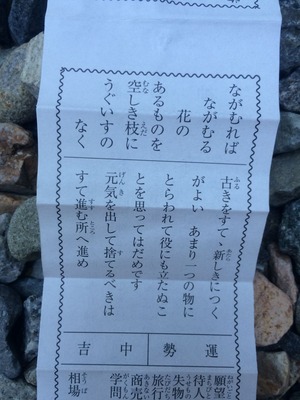 ながむれば
ながむる
花の
あるものを
空しき枝に
うぐいすの
なく
古きをすて、新しきにつく
がよい あまり一つの物に
とらわれて役にも立たぬこ
とを思ってはだめです
元気を出して捨てるべきは
すて進む所へ進め
運勢中吉
願望
待人
失物
旅行
商売
学問
相場